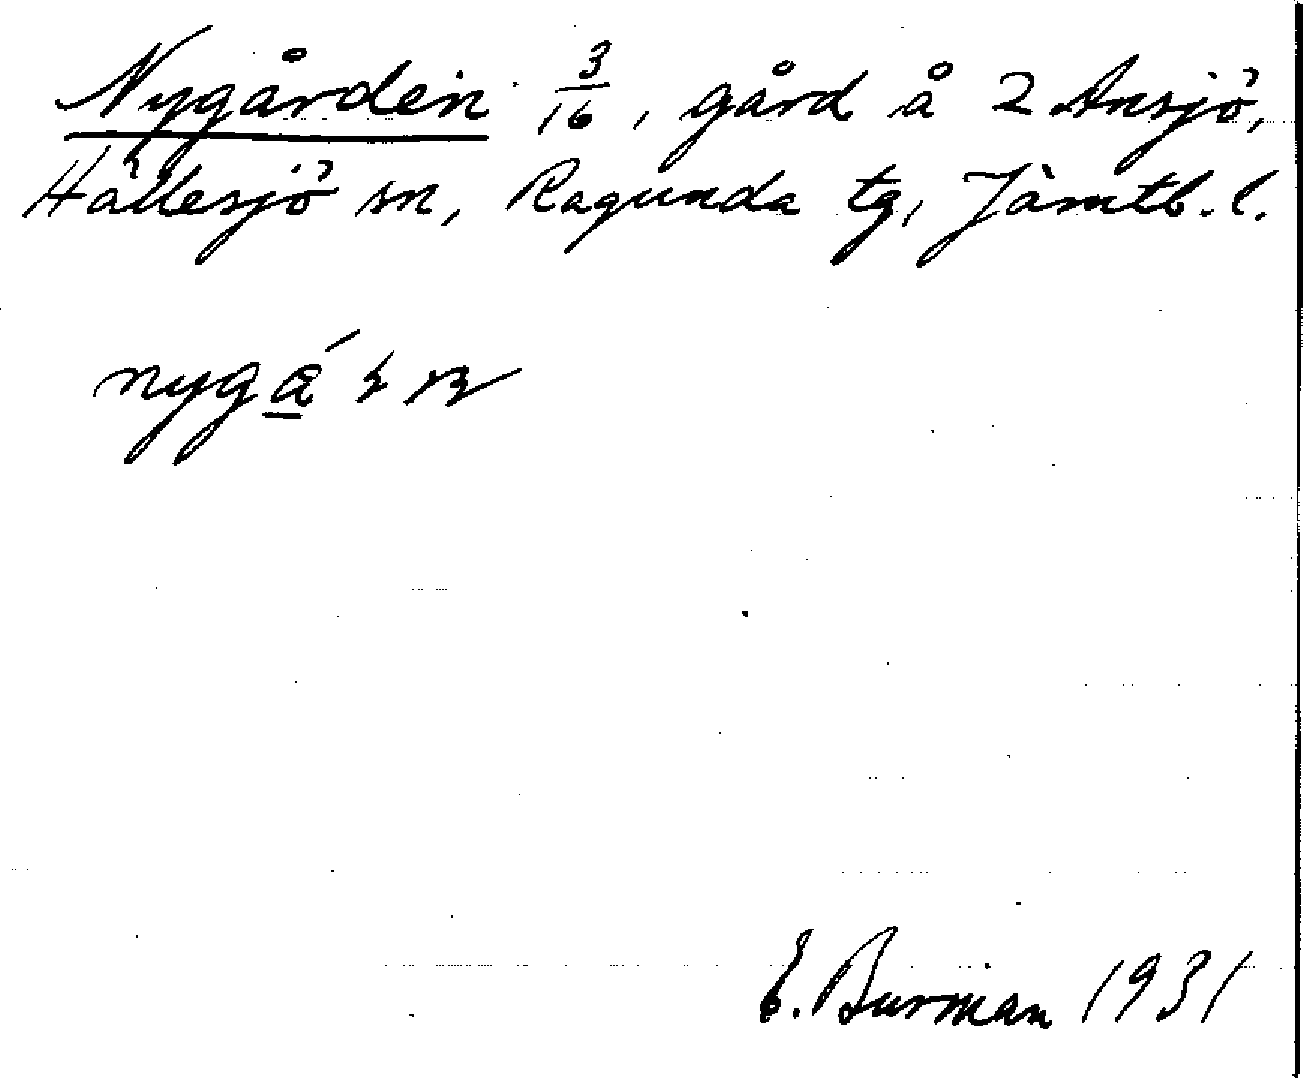 Nygården 3/16, gård å 2 Ansjö,
Hällesjö sn, Ragunda tg, Jämtl. l.
E. Burman 1931